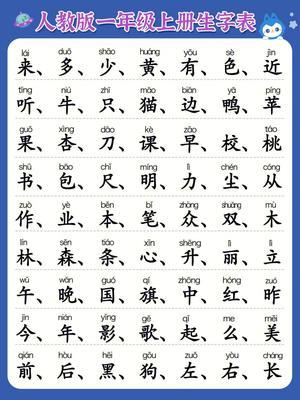 人教版一年级上册生字表
lái duō shǎo huáng yǒu sè jìn
来、多、少、黄、有、色、近
tīng niú zhǐ māo biān yā píng
听、牛、只、猫、边、鸭、苹
guǒ xìng dāo kè zǎo xiào táo
果、杏、刀、课、早、校、桃
shū bāo chǐ míng lì chén cóng
书、包、尺、明、力、尘、从
zuò yè běn bǐ zhòng shuāng mù
作、业、本、笔、众、双、木
lín sēn tiáo xīn shēng lì lì
林、森、条、心、升、丽、立
wǔ wǎn guó qí zhōng hóng zuó
午、晚、国、旗、中、红、昨
jīn nián yǐng gē qǐ me měi
今、年、影、歌、起、么、美
qián hòu hēi gǒu zuǒ yòu cháng
前、后、黑、狗、左、右、长